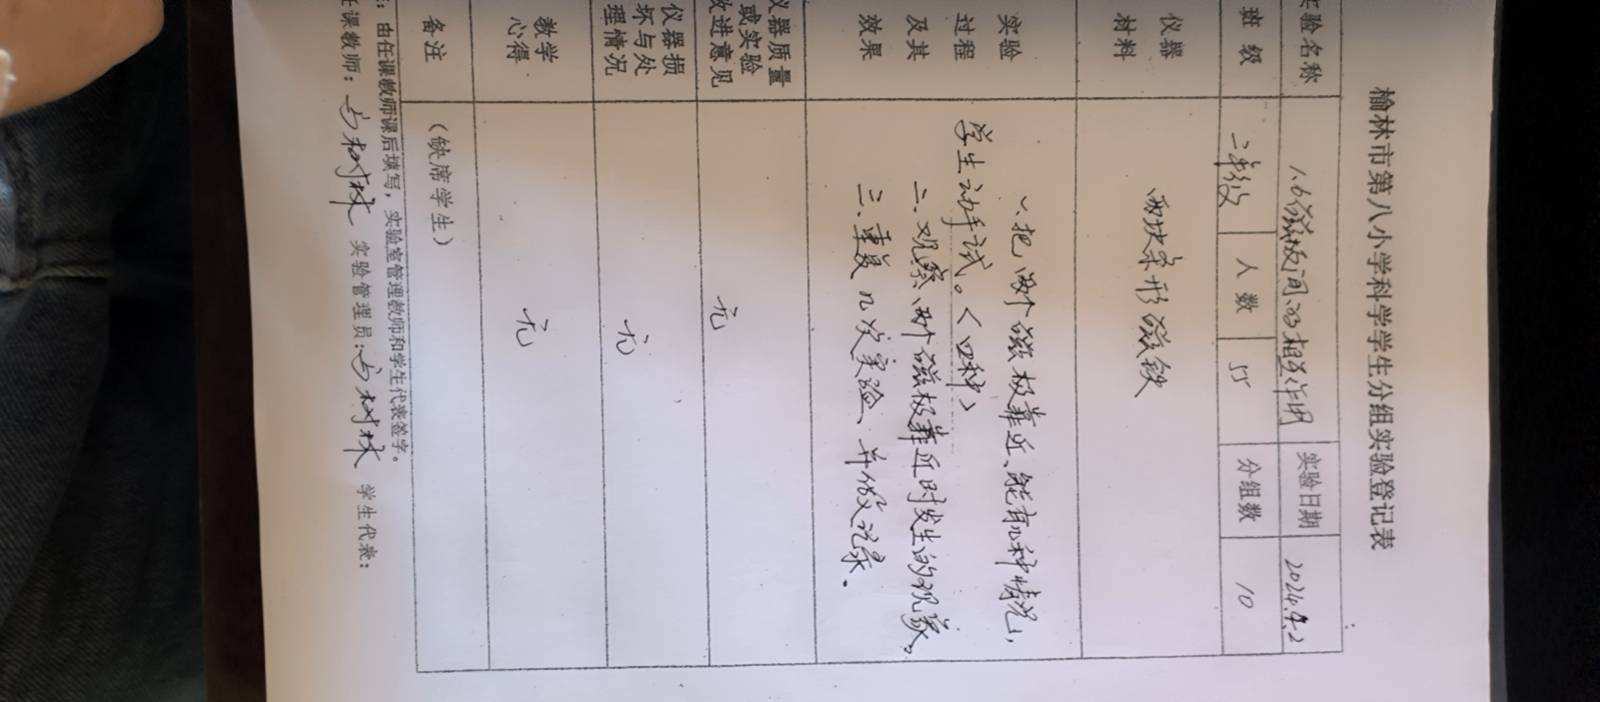 榆林市第八小学科学学生分组实验登记表
实验名称 1.6磁极间的相互作用 实验日期 2024.4.2
班 级 二年级 人 数 55 分组数 10
仪器
材料
两块条形磁铁
实验
过程
及其
效果
一、把两个磁极靠近、能有几种情况,
学生动手试。(四种)
二、观察、两个磁极靠近时发生的现象。
三、重复几次实验、并做好记录.
仪器质量
或实验
改进意见
无
仪器损
坏与处
理情况
无
教学
心得
无
备注 (缺席学生)
:由任课教师课后填写,实验室管理教师和学生代表签字。
任课教师: 树林 实验管理员: 树林 学生代表: